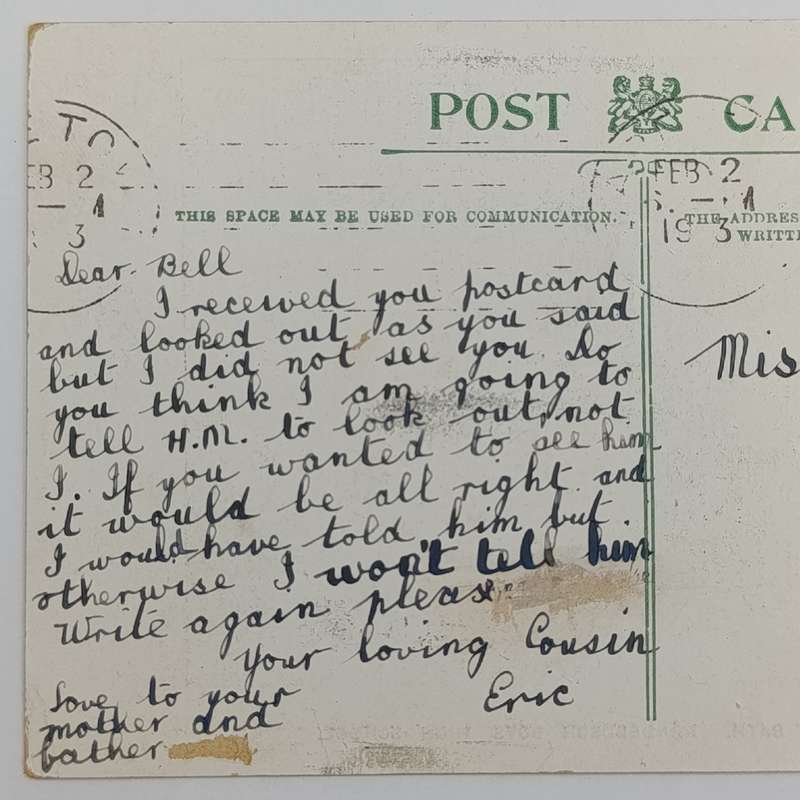 POST CA
TO
EB 2
1
3
FEB 2
1
19 3
THIS SPACE MAY BE USED FOR COMMUNICATION.
THE ADDRES
WRITT
Dear Bell
I received you postcard
and looked out as you said
but I did not see you. Do
you think I am going to
tell H.M. to look out, not
I. If you wanted to see him
it would be all right and
I would have told him but
otherwise I won't tell him
Write again please
Your loving Cousin
Eric
Love to your
mother and
father
Mis